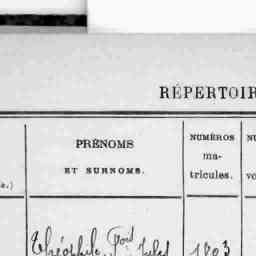 RÉPERTOIR
PRÉNOMS
ET SURNOMS.
NUMÉROS
ma-
tricules.
Théophile
1803